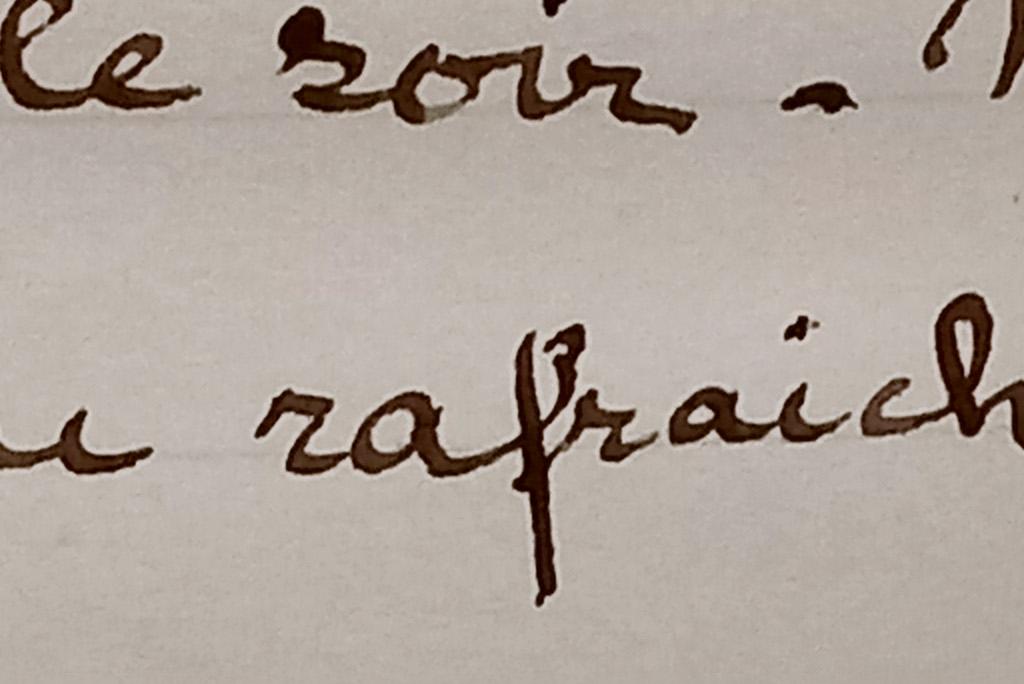 le soir -
rafraich